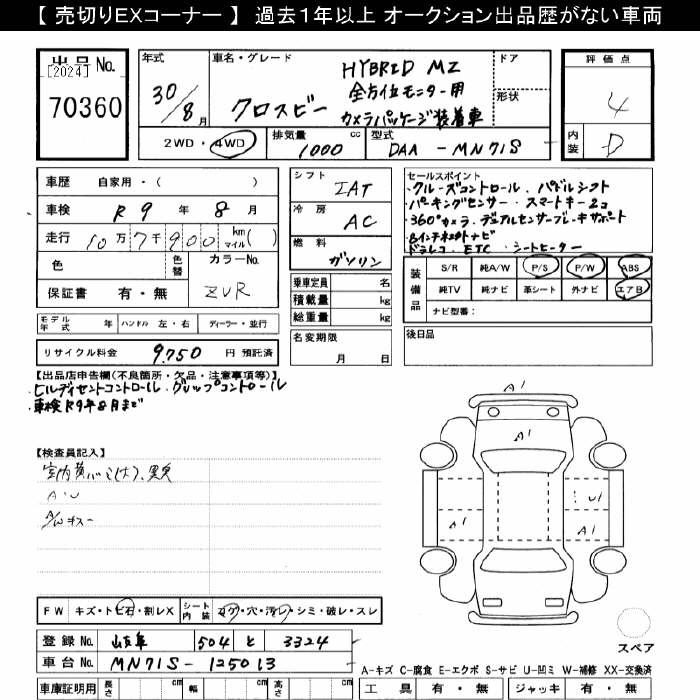 【 売切りEXコーナー 】 過去1年以上 オークション出品歴がない車両
出品 No.
[2024]
70360
年式
30/8月
車名・グレード
クロスビー
HYBRID MZ
全方位モニター用
カメラパッケージ装着車
ドア
形状
2WD・4WD
排気量
1000 cc
型式
DAA - MN71S
評価点
4
内装
D
車歴 自家用・( )
車検 R9 年 8 月
走行 10万7千900 km マイル ( )
色
色替
カラーNo.
ZVR
保証書 有・無
シフト
IAT
冷房
AC
燃料
ガソリン
乗車定員 名
積載量 kg
総重量 kg
セールスポイント
・クルーズコントロール・パドルシフト
・パーキングセンサー・スマートキー2コ
・360°カメラ・デュアルセンサーブレーキサポート
・8インチネットナビ
・ドラレコ・ETC・シートヒーター
装備品
S/R 純A/W P/S P/W ABS
純TV 純ナビ 革シート 外ナビ エアB
ナビ型番:
モデル年式 年 ハンドル 左・右 ディーラー・並行
名変期限
月 日
後日品
リサイクル料金 9,750 円 預託済
【出品店申告欄(不良箇所・欠品・注意事項等)】
・ヒルディセントコントロール・グリップコントロール
・車検R9年8月まで
【検査員記入】
A・U
A/Wキズ
A1
A1
A1
U1
A1
FW キズ・トビ石・割レX
シート内装 コゲ・穴・汚レ・シミ・破レ・スレ
登録 No. 岐阜 504 と 3324
車台 No. MN71S- 125013
スペア
A-キズ C-腐食 E-エクボ S-サビ U-凹ミ W-補修 XX-交換済
車庫証明用 長さ cm 幅 cm 高さ cm
工具 有・無 ジャッキ 有・無